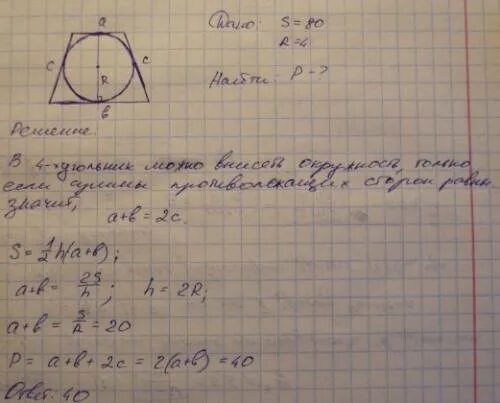 a
c
c
R
b
Дано: S = 80
R = 4
Найти: P - ?
Решение:
В 4-хугольник можно вписать окружность, только
если суммы противолежащих сторон равны
значит,
a+b = 2c.
S = 1/2 h(a+b);
a+b = 2S/h; h = 2R;
a+b = S/R = 20
P = a+b+2c = 2(a+b) = 40
Ответ: 40